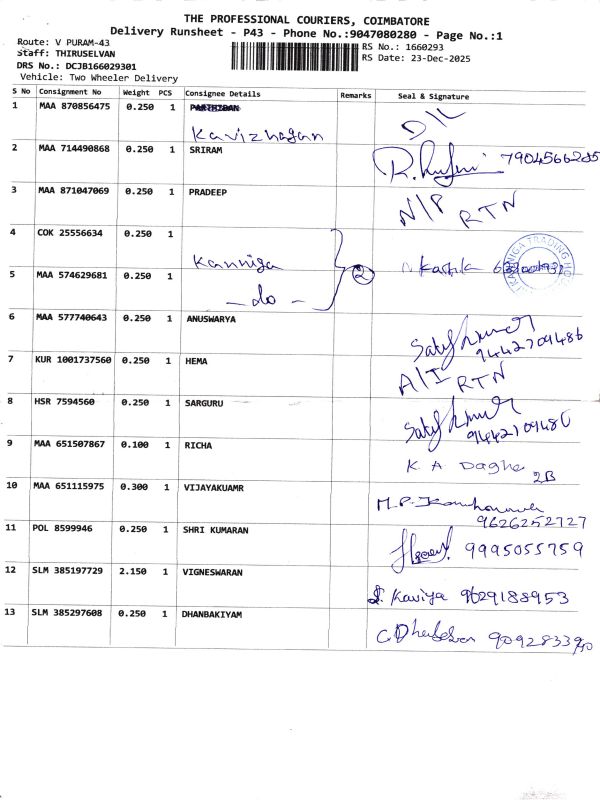 THE PROFESSIONAL COURIERS, COIMBATORE
Delivery Runsheet - P43 - Phone No.:9047080280 - Page No.:1
Route: V PURAM-43
Staff: THIRUSELVAN
DRS No.: DCJB166029301
Vehicle: Two Wheeler Delivery
RS No.: 1660293
RS Date: 23-Dec-2025
S No Consignment No Weight PCS Consignee Details Remarks Seal & Signature
1 MAA 870856475 0.250 1 PARTHIBAN
Kavizhagan D/L
2 MAA 714490868 0.250 1 SRIRAM 7904566285
3 MAA 871047069 0.250 1 PRADEEP N/P RTN
4 COK 25556634 0.250 1
Kanniga 2
5 MAA 574629681 0.250 1
- do -
6 MAA 577740643 0.250 1 ANUSWARYA
9442709486
7 KUR 1001737560 0.250 1 HEMA A/I RTN
8 HSR 7594560 0.250 1 SARGURU
9442709486
9 MAA 651507867 0.100 1 RICHA K. A Daghe
2B
10 MAA 651115975 0.300 1 VIJAYAKUAMR M.P.
9626252727
11 POL 8599946 0.250 1 SHRI KUMARAN 9995055759
12 SLM 385197729 2.150 1 VIGNESWARAN S. Kaviya 9629188953
13 SLM 385297608 0.250 1 DHANBAKIYAM